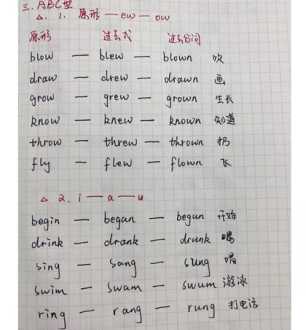 三. ABC型
△. 1. 原形 — ew — ow
原形 过去式 过去分词
blow — blew — blown 吹
draw — drew — drawn 画
grow — grew — grown 生长
know — knew — known 知道
throw — threw — thrown 扔
fly — flew — flown 飞
△ 2. i — a — u
begin — began — begun 开始
drink — drank — drunk 喝
sing — sang — sung 唱
swim — swam — swum 游泳
ring — rang — rung 打电话